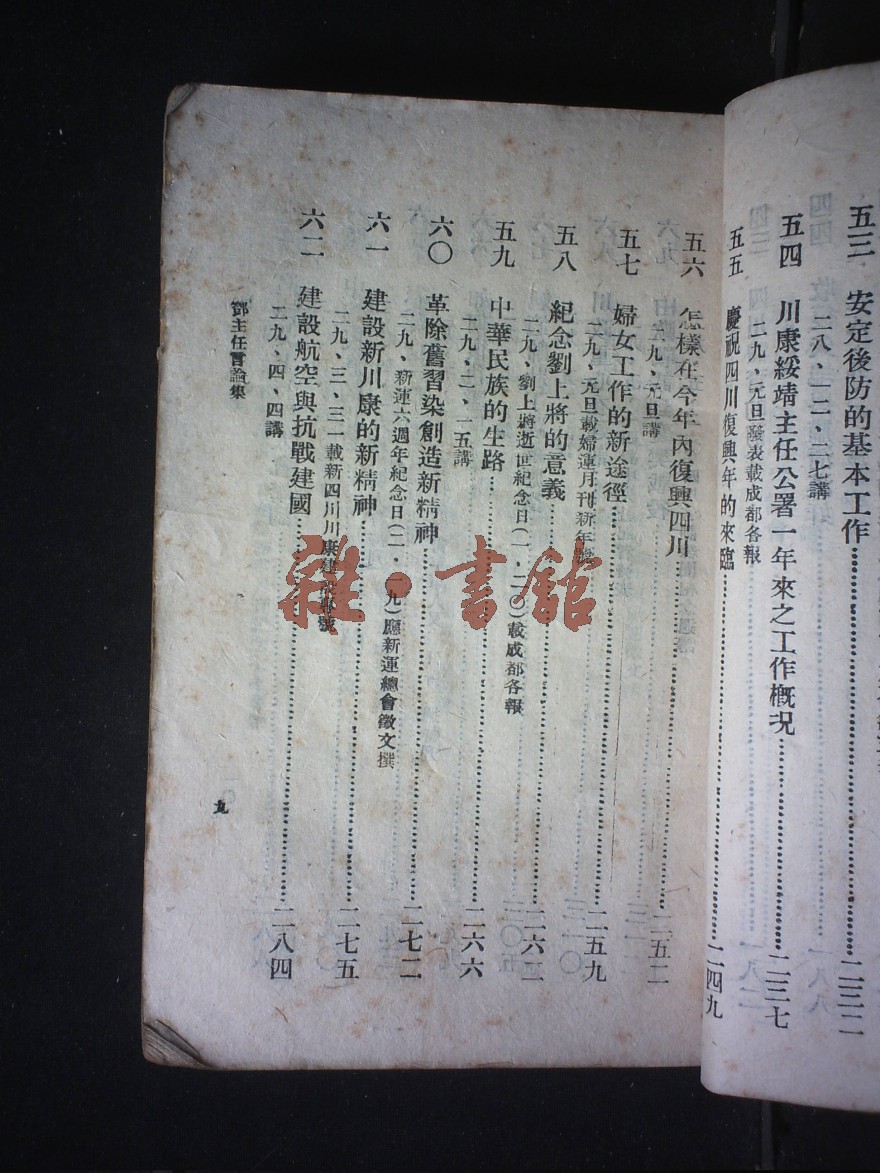 五三 安定後防的基本工作……二三二
二八、一二、二七講
五四 川康綏靖主任公署一年來之工作概況……二三七
二九、元旦發表載成都各報
五五 慶祝四川復興年的來臨……二四九
五六 怎樣在今年內復興四川……二五二
二九、元旦講
五七 婦女工作的新途徑……二五九
二九、元旦載婦運月刊新年號
五八 紀念劉上將的意義……二六二
二九、劉上將逝世紀念日(一、二〇)載成都各報
五九 中華民族的生路……二六六
二九、二、一五講
六〇 革除舊習染創造新精神……二七二
二九、新運六週年紀念日(二、一九)應新運總會徵文撰
六一 建設新川康的新精神……二七五
二九、三、三一載新四川川康建設專號
六二 建設航空與抗戰建國……二八四
二九、四、四講
鄧主任言論集
九
雜·書館